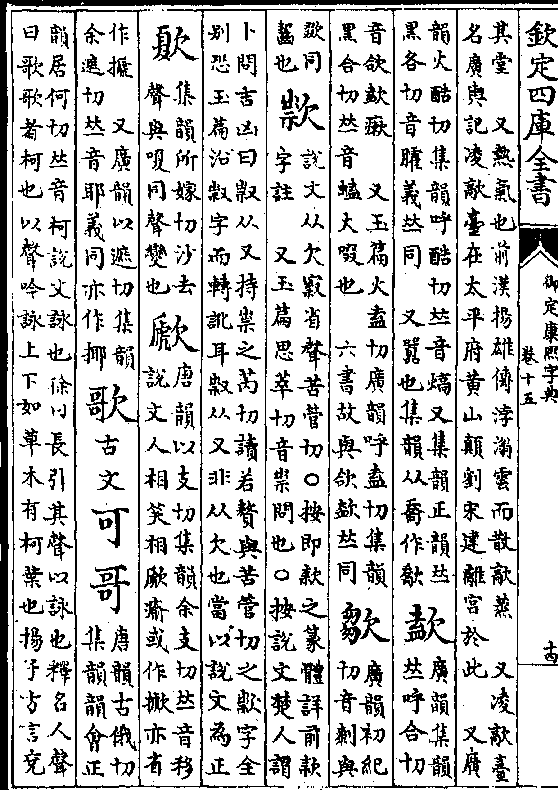 欽定四庫全書
御定康熙字典
卷十五
其堂 又熱氣也前漢揚雄傳浡滃雲而散歊蒸 又凌歊臺
名廣輿記凌歊臺在太平府黄山顛劉宋建離宫於此 又廣
韻火酷切集韻呼酷切𠀤音熇又集韻正韻𠀤
黑各切音臛義𠀤同 又嚻也集韻从喬作
廣韻集韻
𠀤呼合切
音欱 又玉篇火盍切廣韻呼盍切集韻
黑合切𠀤音 大啜也 六書故與欱歃𠀤同
廣韻初紀
切音剌與
同
也
說文从欠 省聲苦管切○按即款之篆體詳前款
字註 又玉篇思萃切音祟問也○按說文楚人謂
卜問吉凶曰 从又持祟之芮切讀若贅與苦管切之 字全
别恐玉篇沿 字而轉訛耳 从又非从欠也當以說文為正
集韻所嫁切沙去
聲與嗄同聲變也
歋
唐韻以支切集韻余支切𠀤音移
說文人相笑相歋瘉或作 亦省
作搋 又廣韻以遮切集韻
余遮切𠀤音耶義同亦作揶
歌
古文
可哥
唐韻古俄切
集韻韻會正
韻居何切𠀤音柯說文詠也徐曰長引其聲以詠也釋名人聲
曰歌歌者柯也以聲吟詠上下如草木有柯葉也揚子方言兖